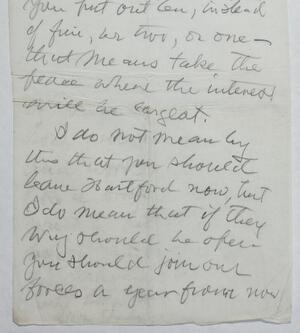 you put out ten, instead
of five, or two, or one—
that means take the
place where the interest
will be largest.
I do not mean by
this that you should
leave Hartford now, but
I do mean that if they
way should be open
you should join our
forces a year from now